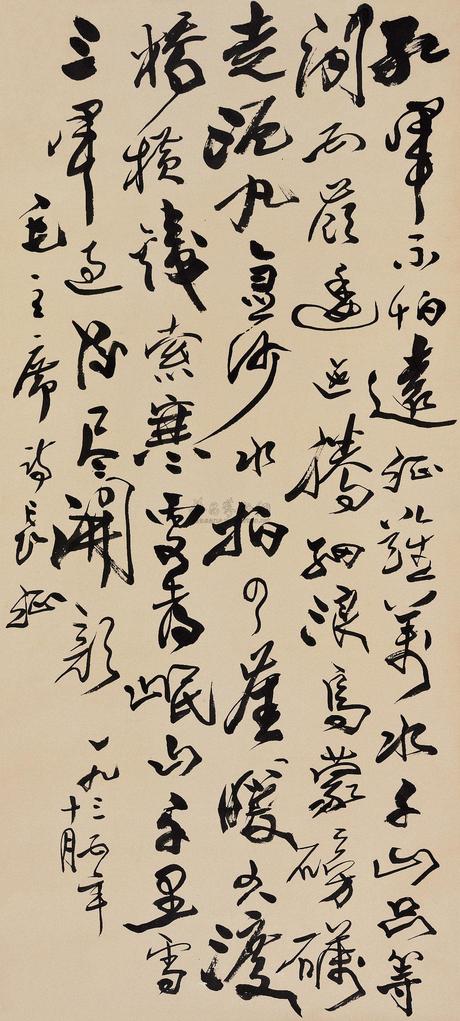 红軍不怕遠征難萬水千山只等
閒五嶺逶迤腾細浪烏蒙磅礴
走泥丸金沙水拍云崖暖大渡
橋横鐵索寒更喜岷山千里雪
三軍过后尽開颜
一九三五年
十月
毛主席诗長征